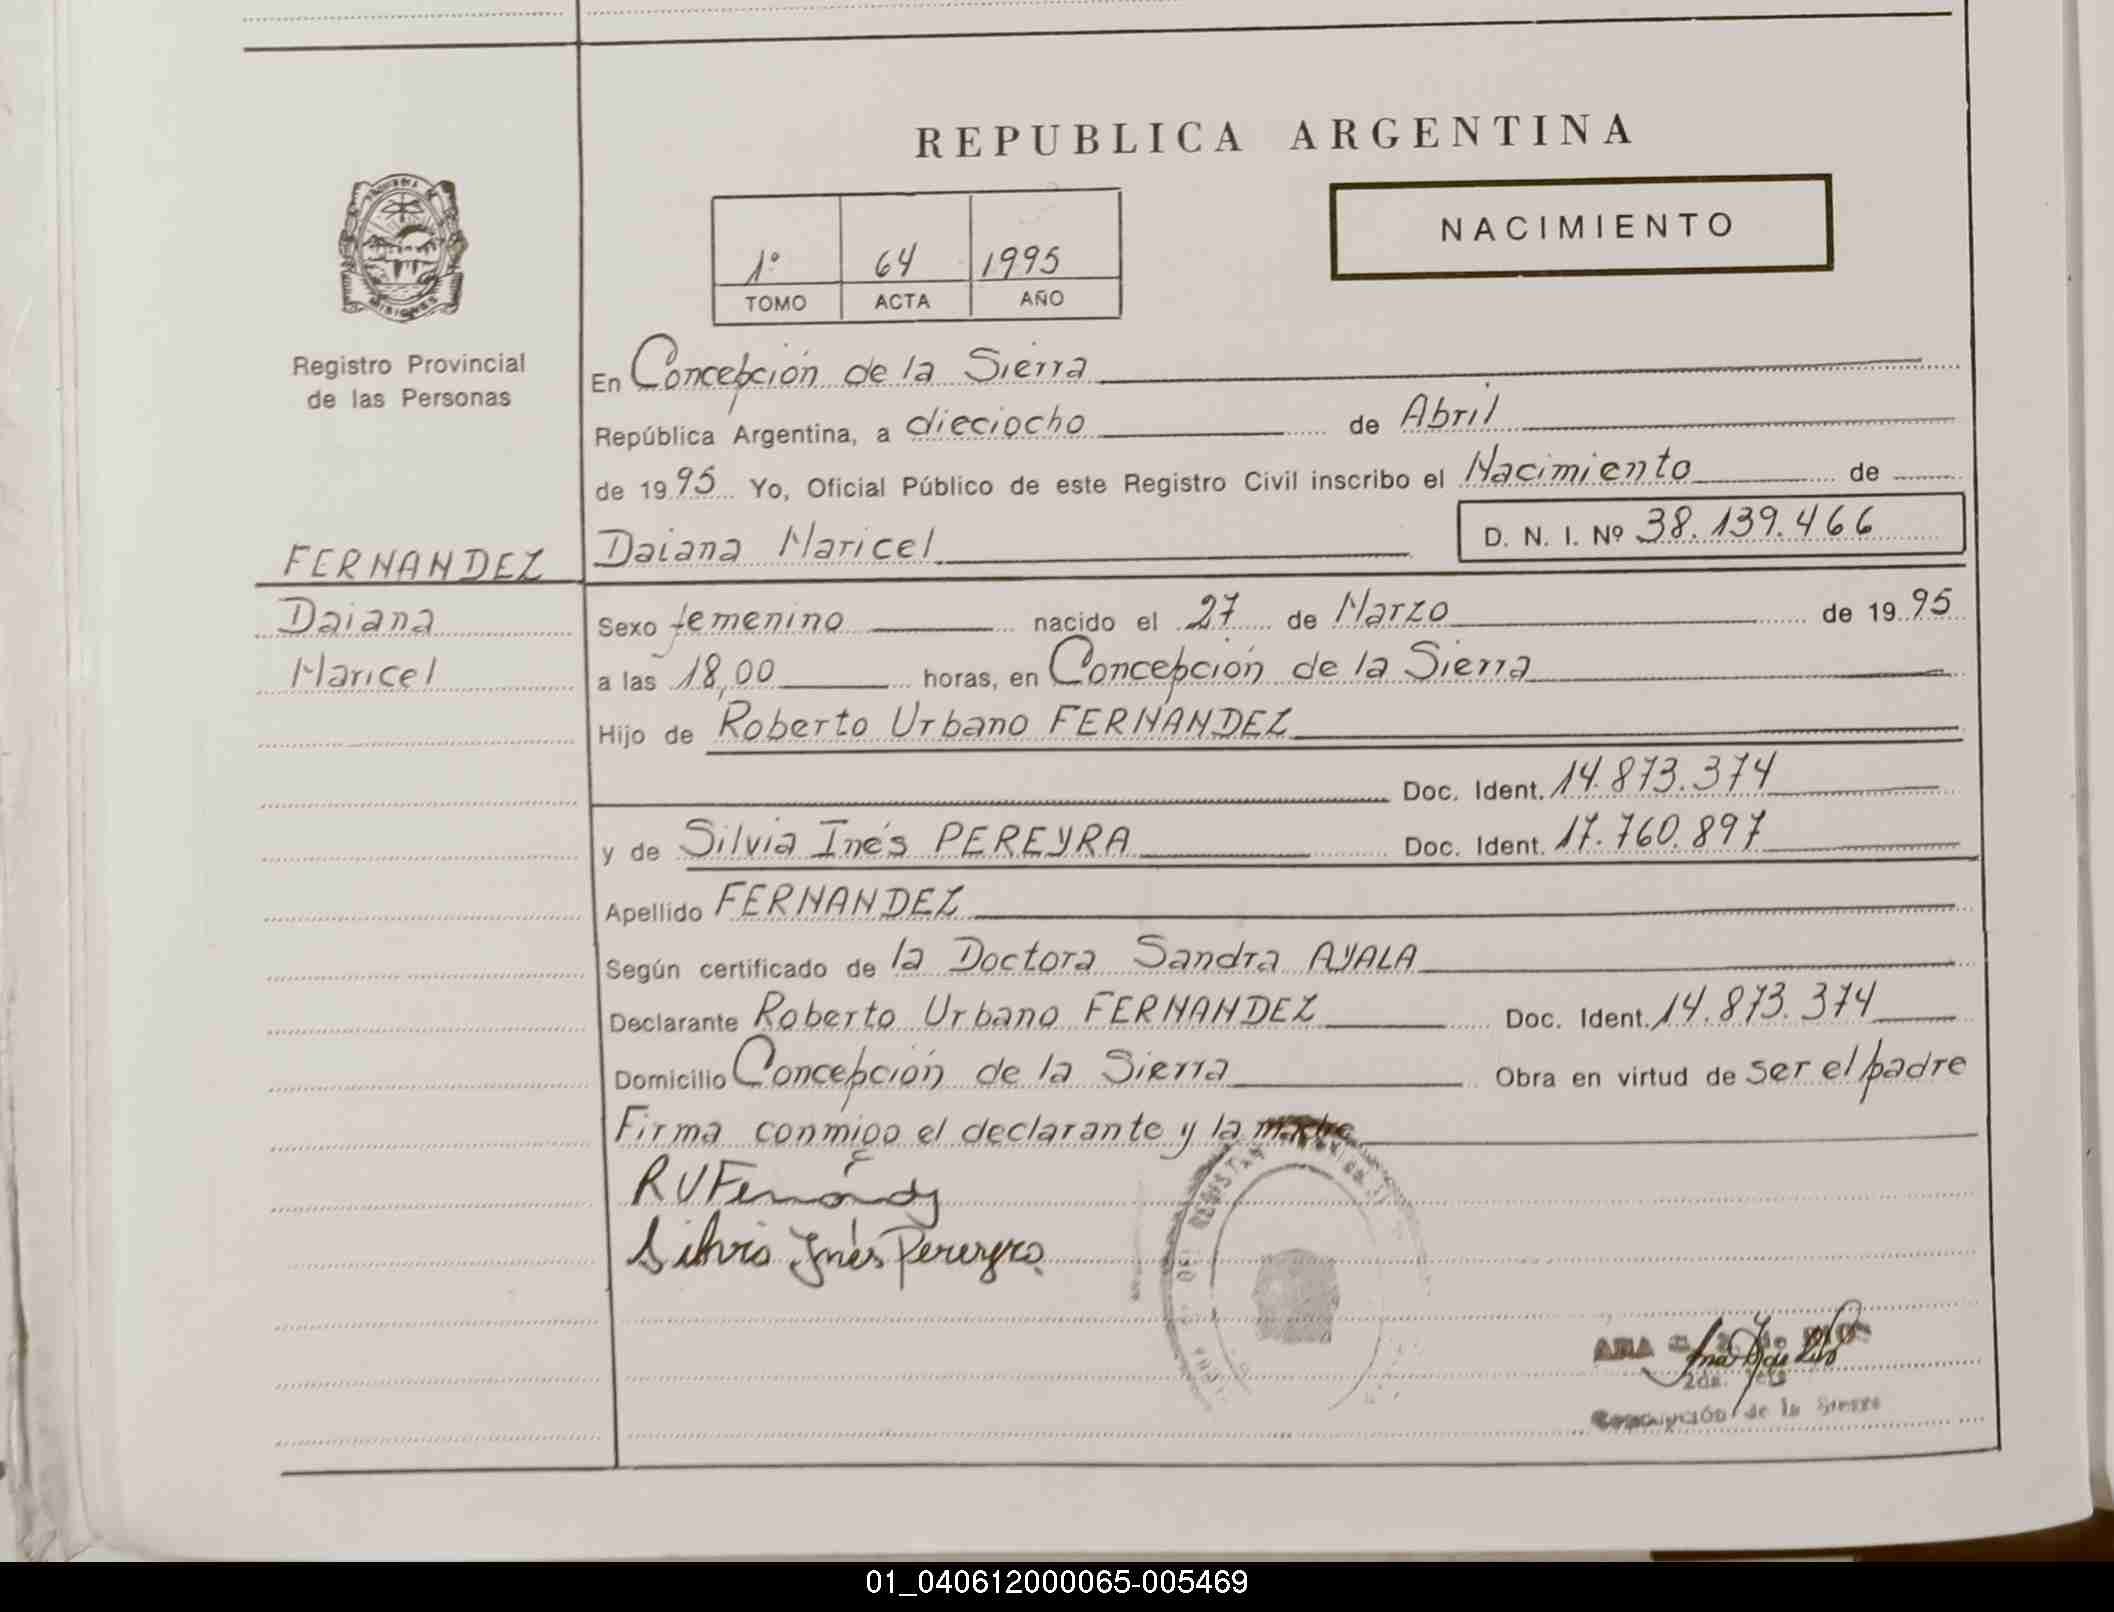 REPUBLICA ARGENTINA
NACIMIENTO
1º 64 1995
TOMO ACTA AÑO
MISIONES
Registro Provincial
de las Personas
En Concepción de la Sierra
República Argentina, a dieciocho de Abril
de 1995 Yo, Oficial Público de este Registro Civil inscribo el Nacimiento de
Daiana Maricel D. N. I. Nº 38.139.466
FERNANDEZ
Daiana
Maricel
Sexo femenino nacido el 27 de Marzo de 1995
a las 18,00 horas, en Concepción de la Sierra
Hijo de Roberto Urbano FERNANDEZ
Doc. Ident. 14.873.374
y de Silvia Inés PEREYRA Doc. Ident. 17.760.897
Apellido FERNANDEZ
Según certificado de la Doctora Sandra AYALA
Declarante Roberto Urbano FERNANDEZ Doc. Ident. 14.873.374
Domicilio Concepción de la Sierra Obra en virtud de ser el padre
Firma conmigo el declarante y la madre
R U Fernandz
Silvia Inés Pereyra
ANA
2da.
Concepción de la Sierra
01_040612000065-005469